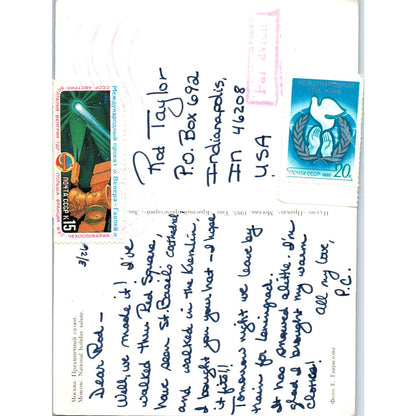 3/26
Dear Rod —
Well, we made it! I've
walked thru Red Square,
have seen St. Basil's cathedral
and walked in the Kremlin.
I bought you your hat – I hope
it fits!!
Tomorrow night we leave by
train for Leningrad.
It has snowed a little. I'm
glad I brought my warm
clothes!
All my love,
P.C.
Rod Taylor
P.O. Box 692
Indianapolis,
IN 46208
USA
Международный проект «Венера–Галлей»
ПОЧТА СССР 15 К
МЕЖДУНАРОДНЫЙ
ГОД МИРА
ПОЧТА СССР • 1986
20к
Москва. Праздничный салют.
Moscow. National holiday salute.